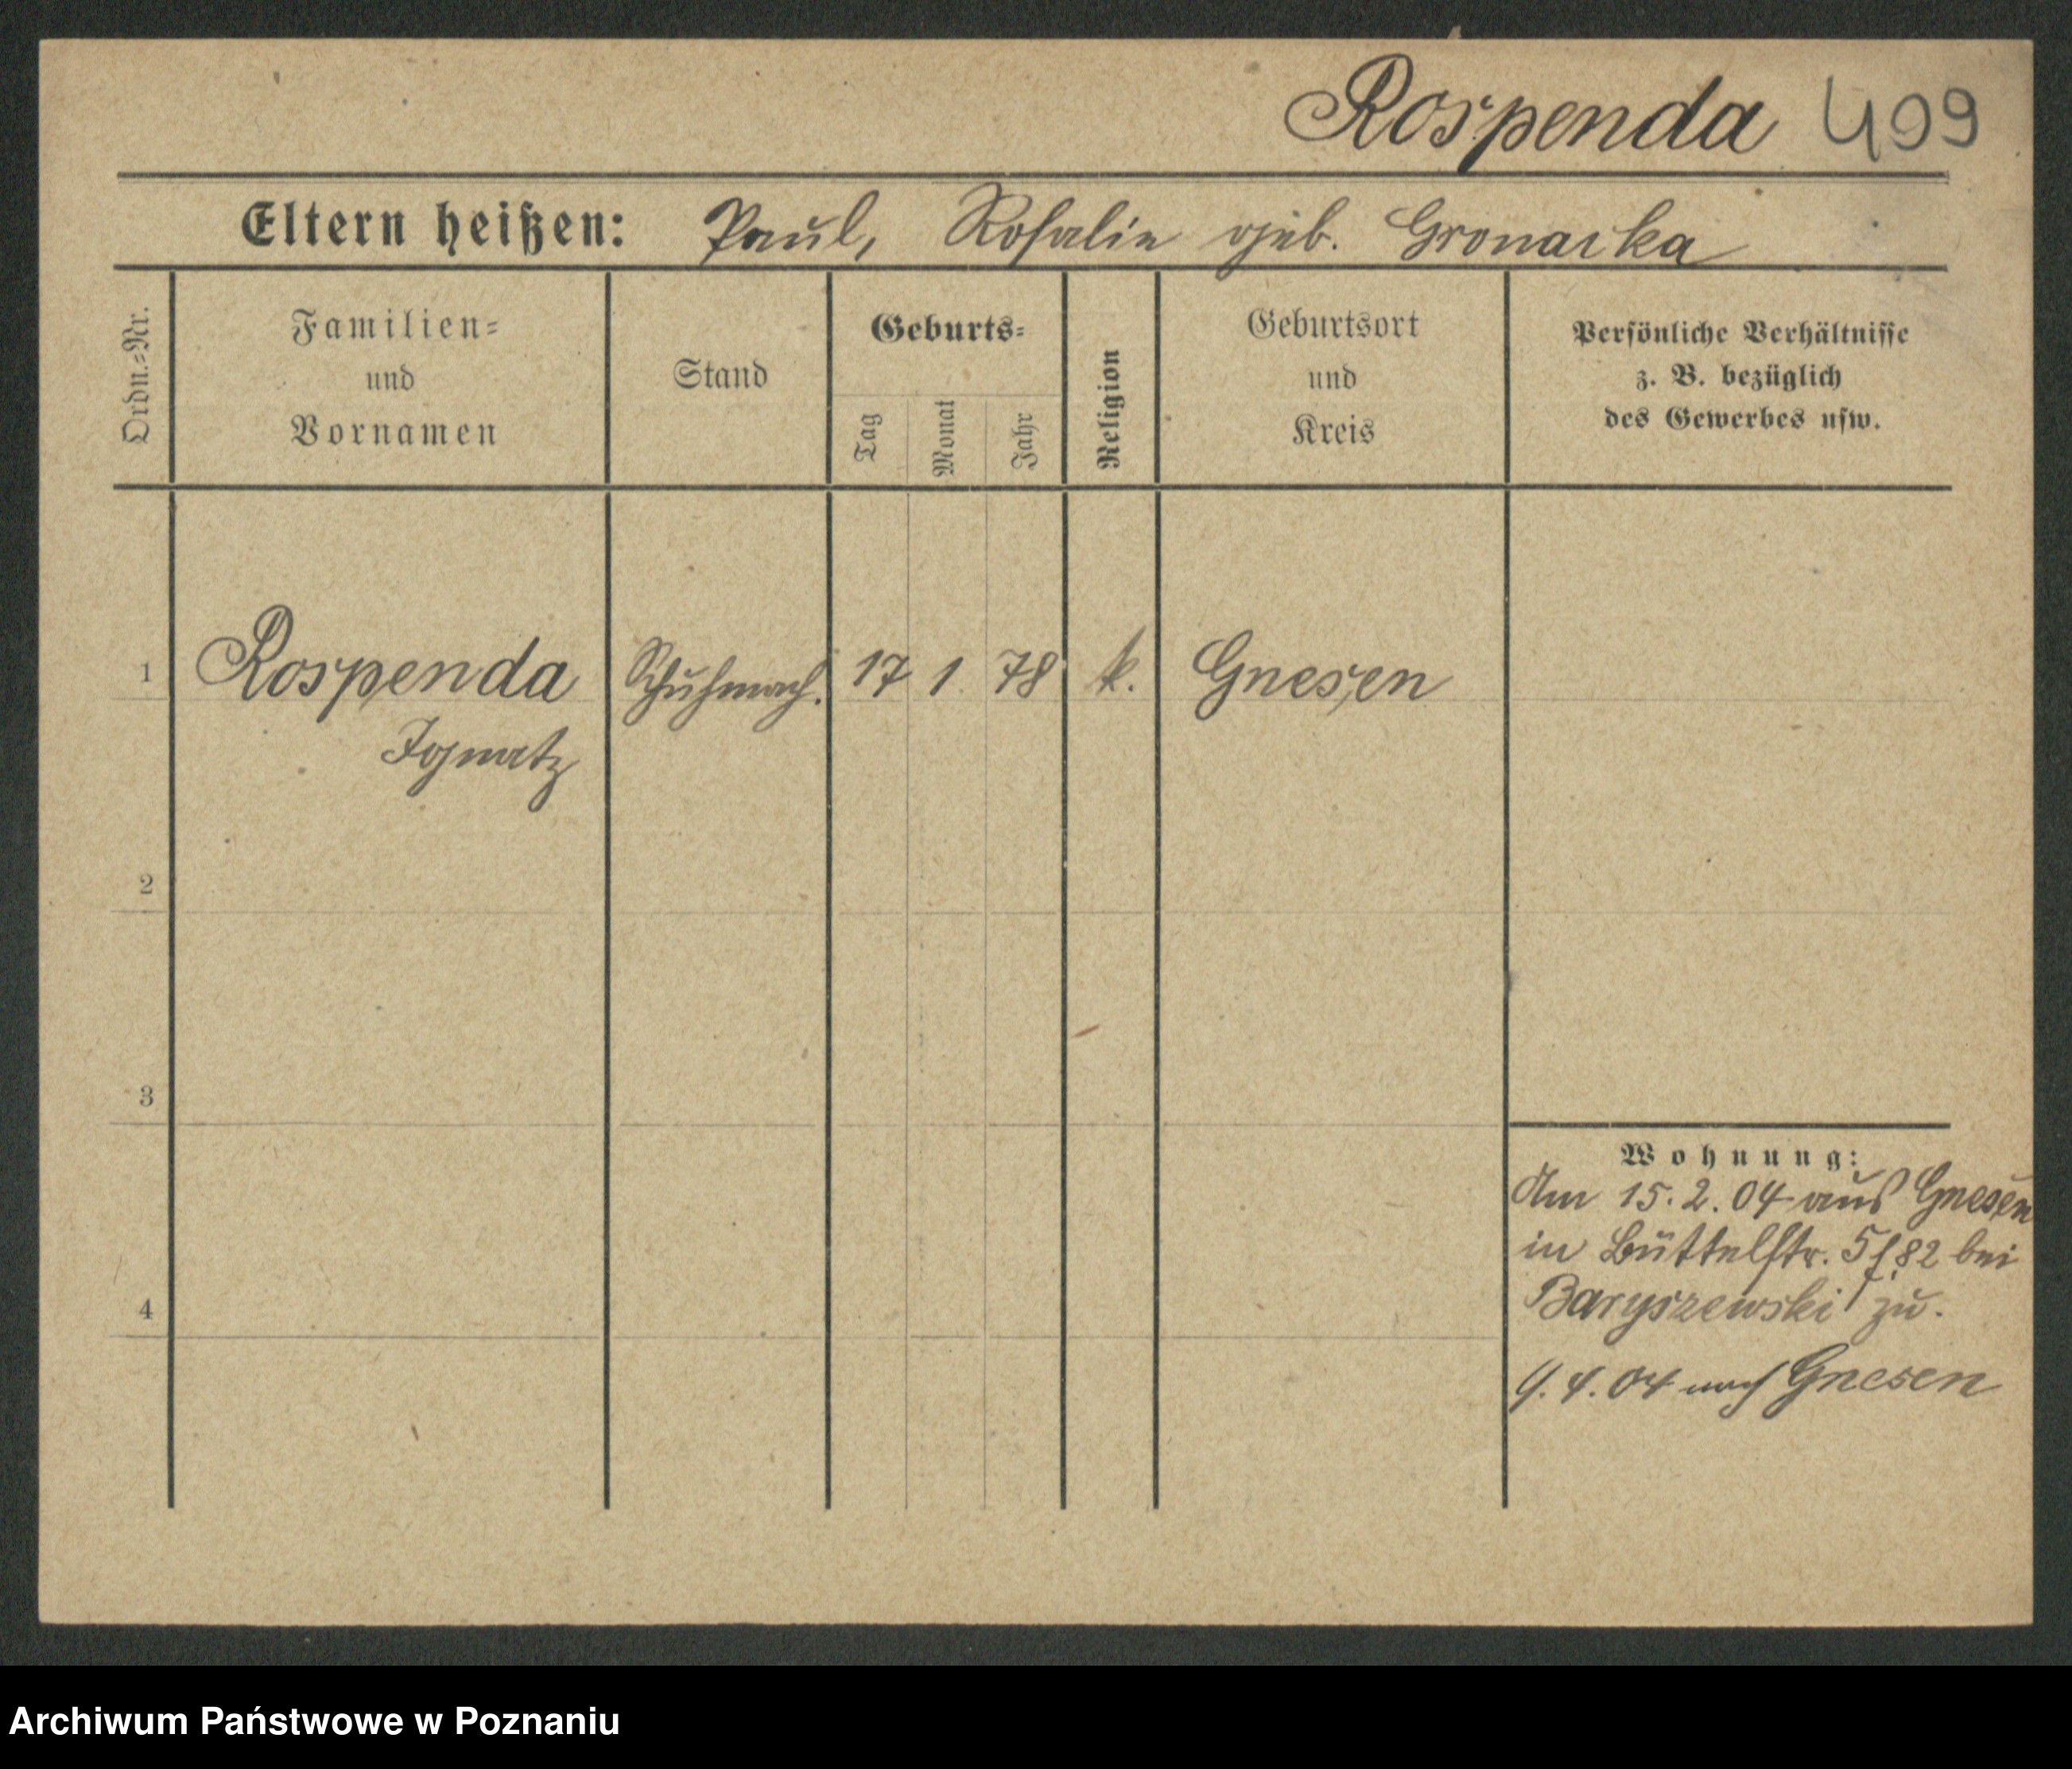 Rospenda 499
Eltern heißen: Paul, Rosalie geb. Gronarka
Ordn.=Nr.
Familien=
und
Vornamen
Stand
Geburts=
Tag
Monat
Jahr
Religion
Geburtsort
und
Kreis
Persönliche Verhältnisse
z. B. bezüglich
des Gewerbes usw.
1 Rospenda Schuhmach. 17 1 78 k. Gnesen
Ignatz
2
3
4
Wohnung:
Am 15.2.04 aus Gnesen
in Büttelstr. 5 f. 82 bei
Baryszewski zu.
9.4.04 nach Gnesen
Archiwum Państwowe w Poznaniu